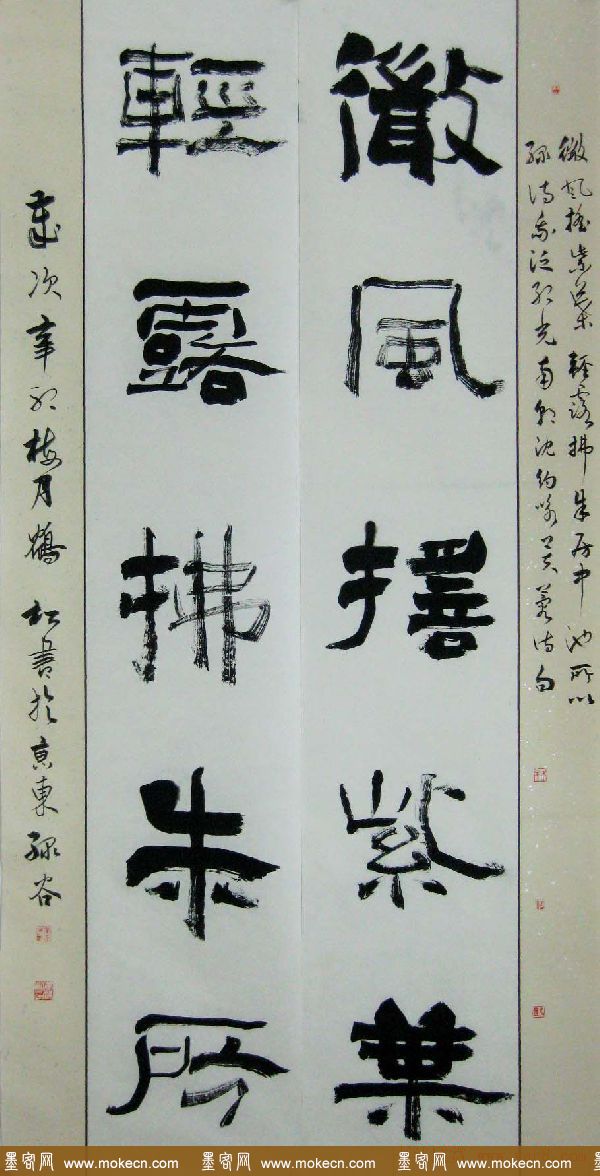 微風搖紫葉輕露拂朱房中池所以
綠待我泛紅光南朝沈約詠芙蓉詩句
微風搖紫葉
輕露拂朱房
歲次辛卯梅月鶴松書於京東綠谷
墨客网 www.mokecn.com 墨客网 www.mokecn.com 墨客网 www.mokecn.com